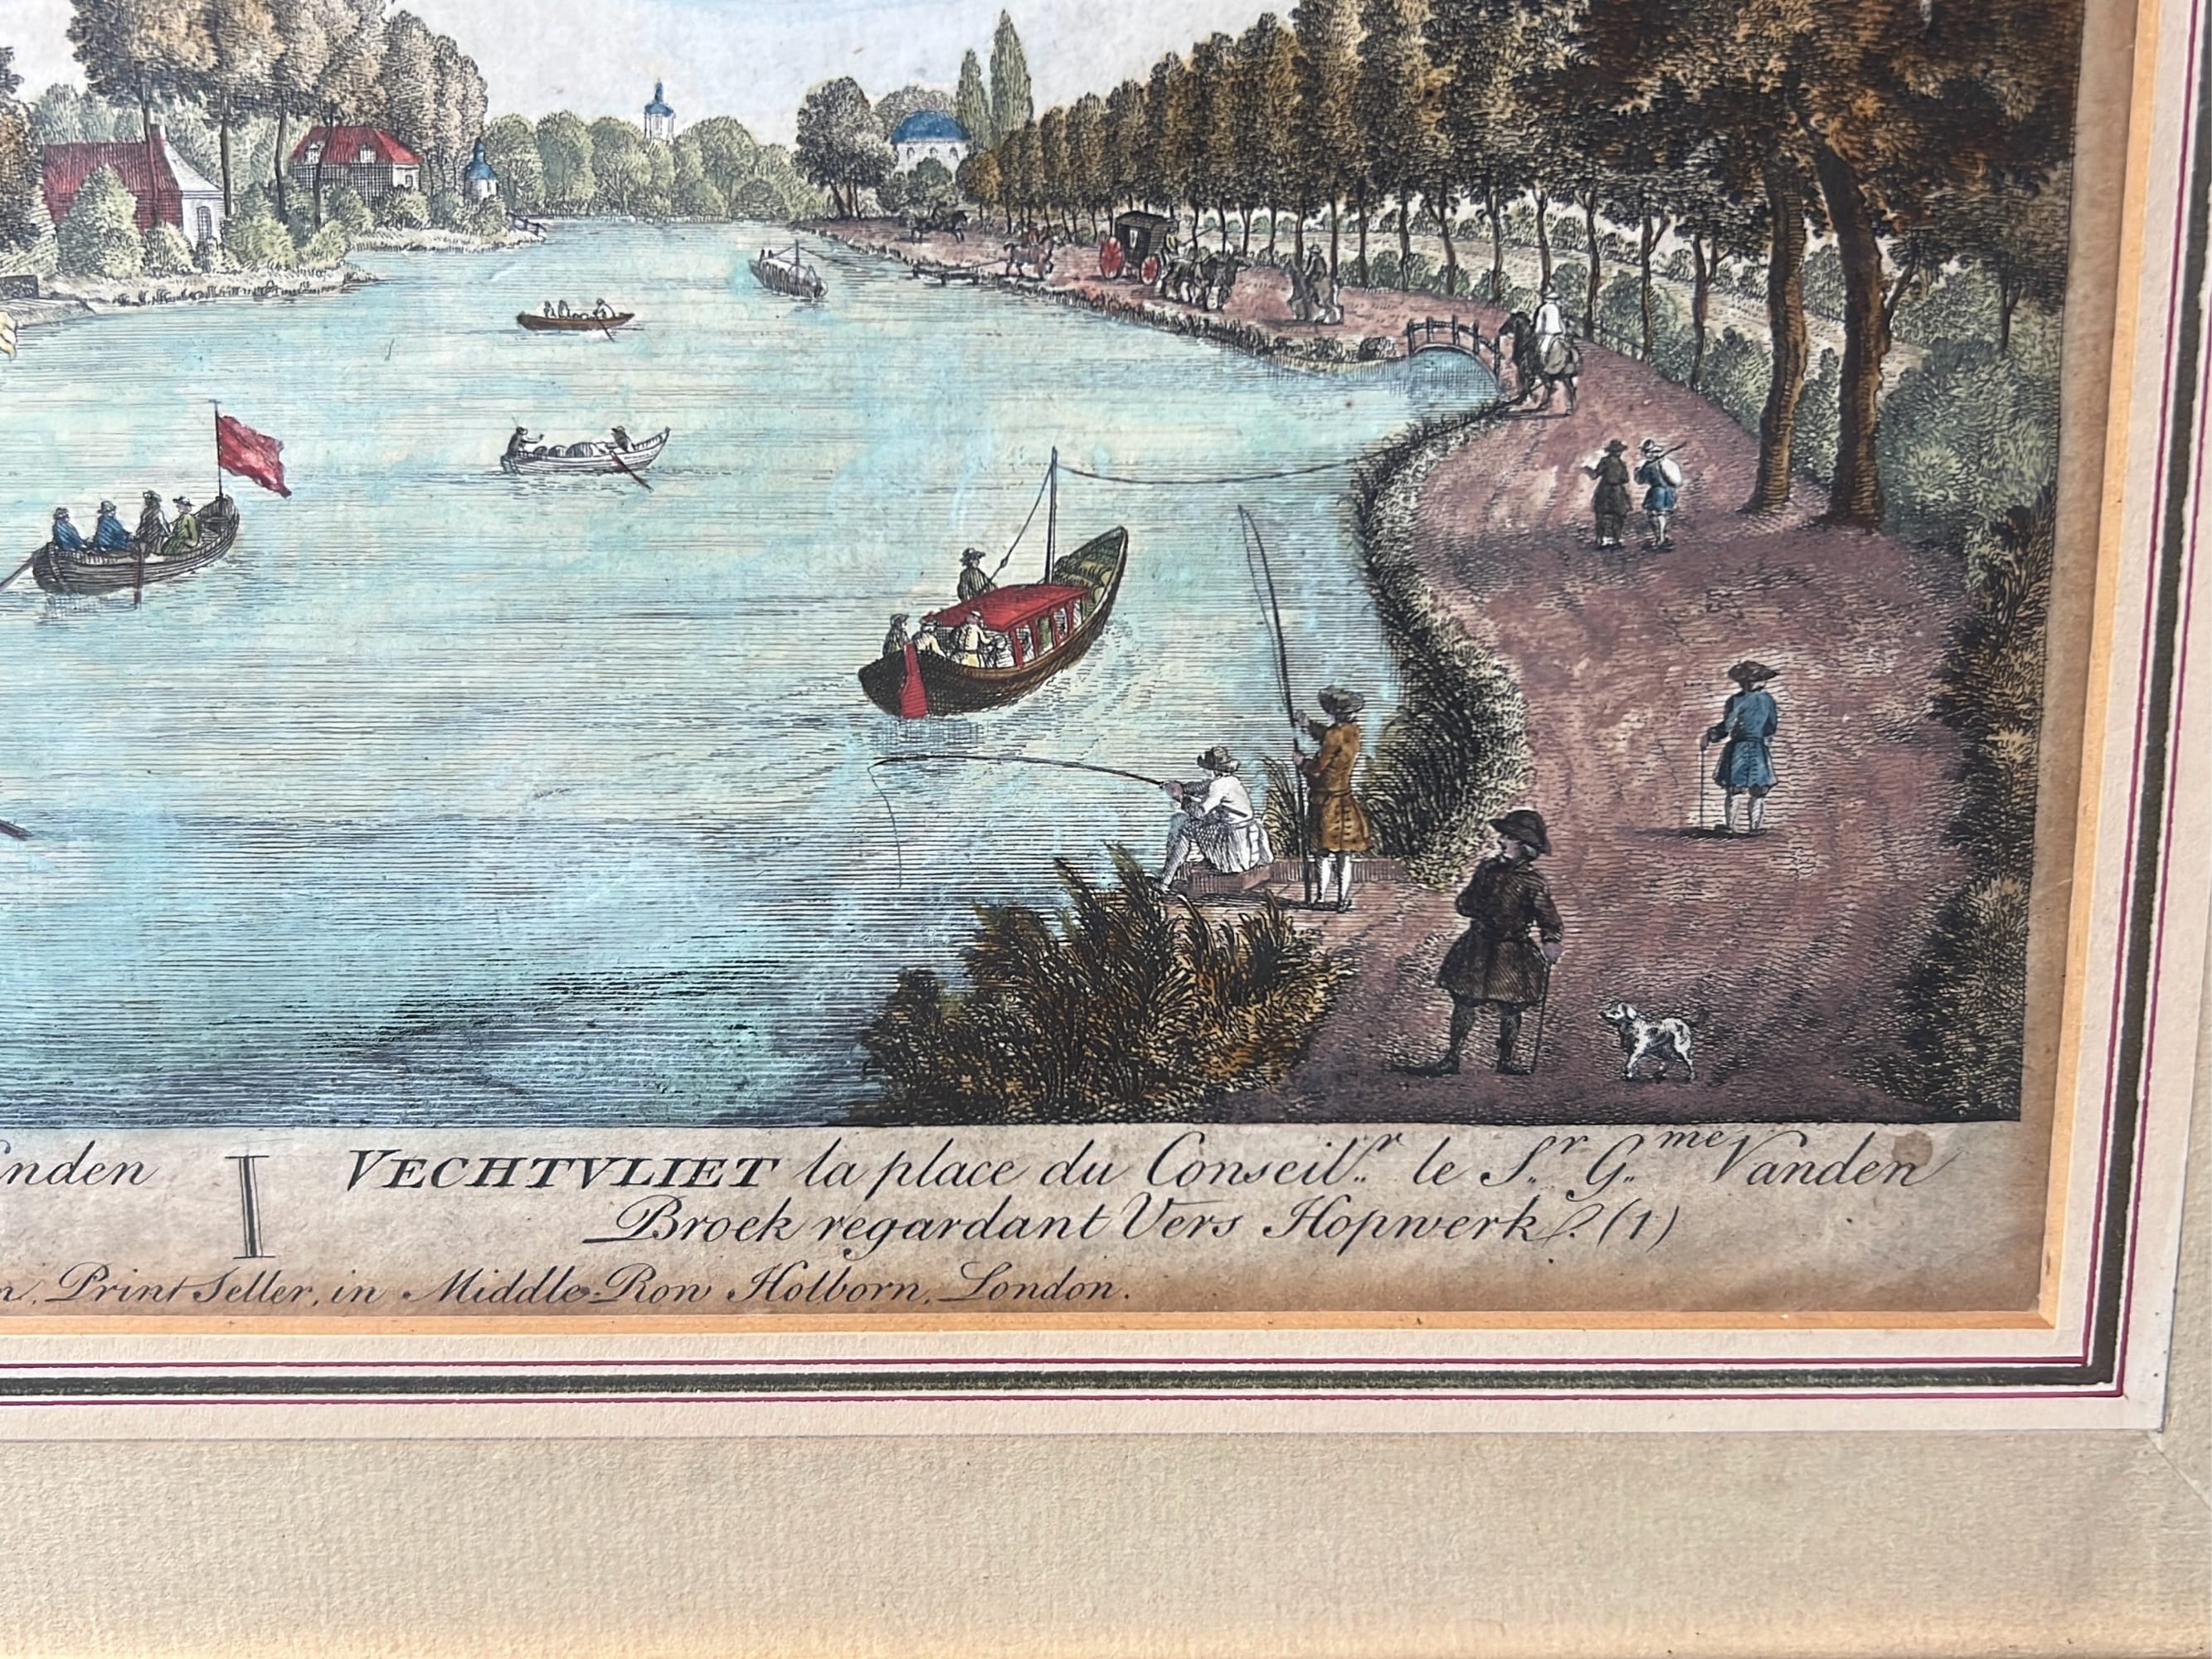 VECHTVLIET la place du Conseil.r le S.r G.me Vanden
Broek regardant Vers Hopwerk. (1)
Print Seller, in Middle-Row Holborn, London.